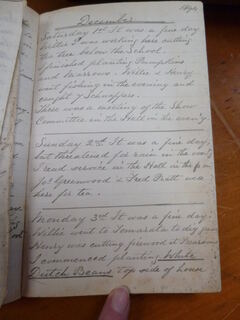 December 1894
Saturday 1st It was a fine day
Willie & was working here cutting
the tree below the School.
I finished planting Pumpkins
and Marrows. Willie & Henry
went fishing in the evening and
caught 7 Schnappers.
There was a meeting of the Show
Committee in the Hall in the evening
Sunday 2nd It was a fine day,
but threatened for rain in the
I read service in the Hall in the
Jos Greenwood & Fred Pratt was
here for tea.
Monday 3rd It was a fine day.
Willie went to to dig
Henry was cutting firewood at
I commenced planting White
Dutch Beans Top side of house